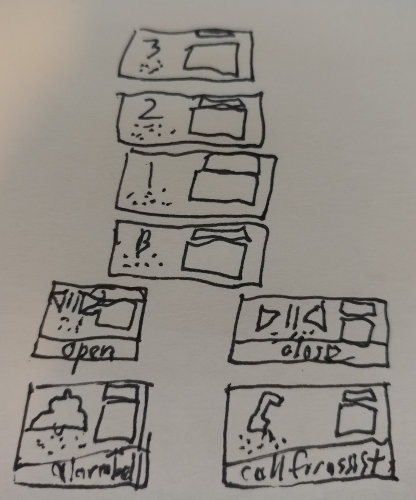 3
2
1
B
open close
alarmbell call for assist